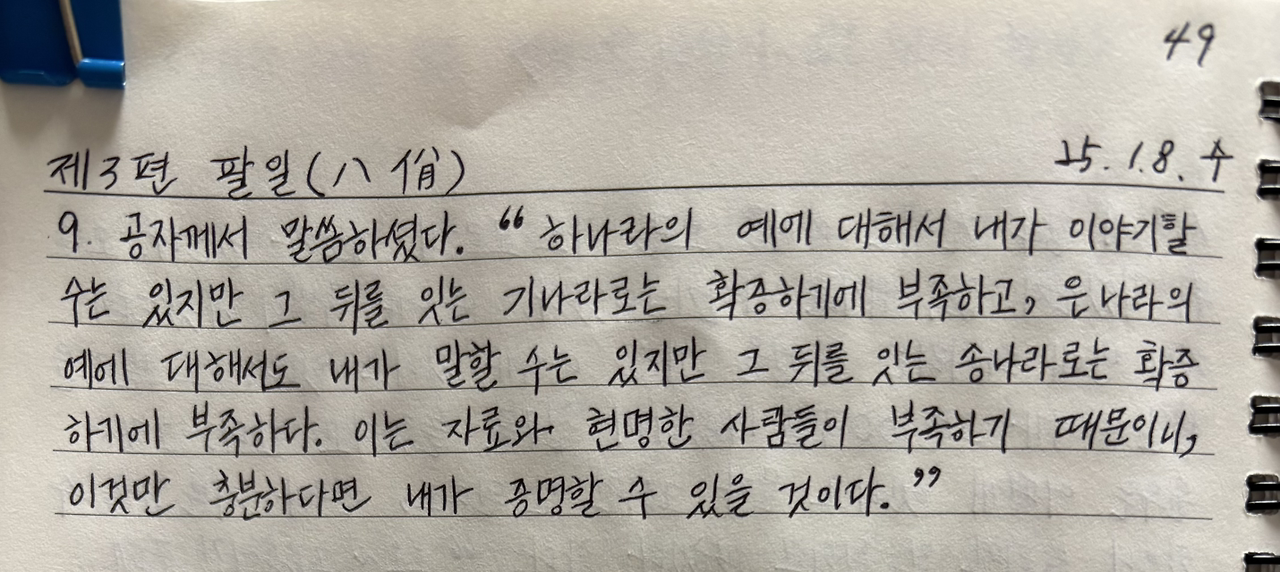 49
제3편 팔일(八佾) 25.1.8. 수
9. 공자께서 말씀하셨다. “하나라의 예에 대해서 내가 이야기할
수는 있지만 그 뒤를 잇는 기나라로는 확증하기에 부족하고, 은나라의
예에 대해서도 내가 말할 수는 있지만 그 뒤를 잇는 송나라로는 확증
하기에 부족하다. 이는 자료와 현명한 사람들이 부족하기 때문이니,
이것만 충분하다면 내가 증명할 수 있을 것이다.”